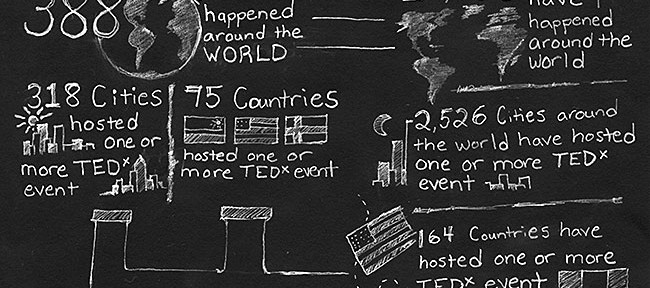 388
happened
around the
WORLD
318 Cities
hosted
one or
more TEDx
event
75 Countries
hosted one or
more TEDx event
have
happened
around the
world
2,526 Cities around
the world have hosted
one or more TEDx
event
164 Countries have
hosted one or more
TEDx event